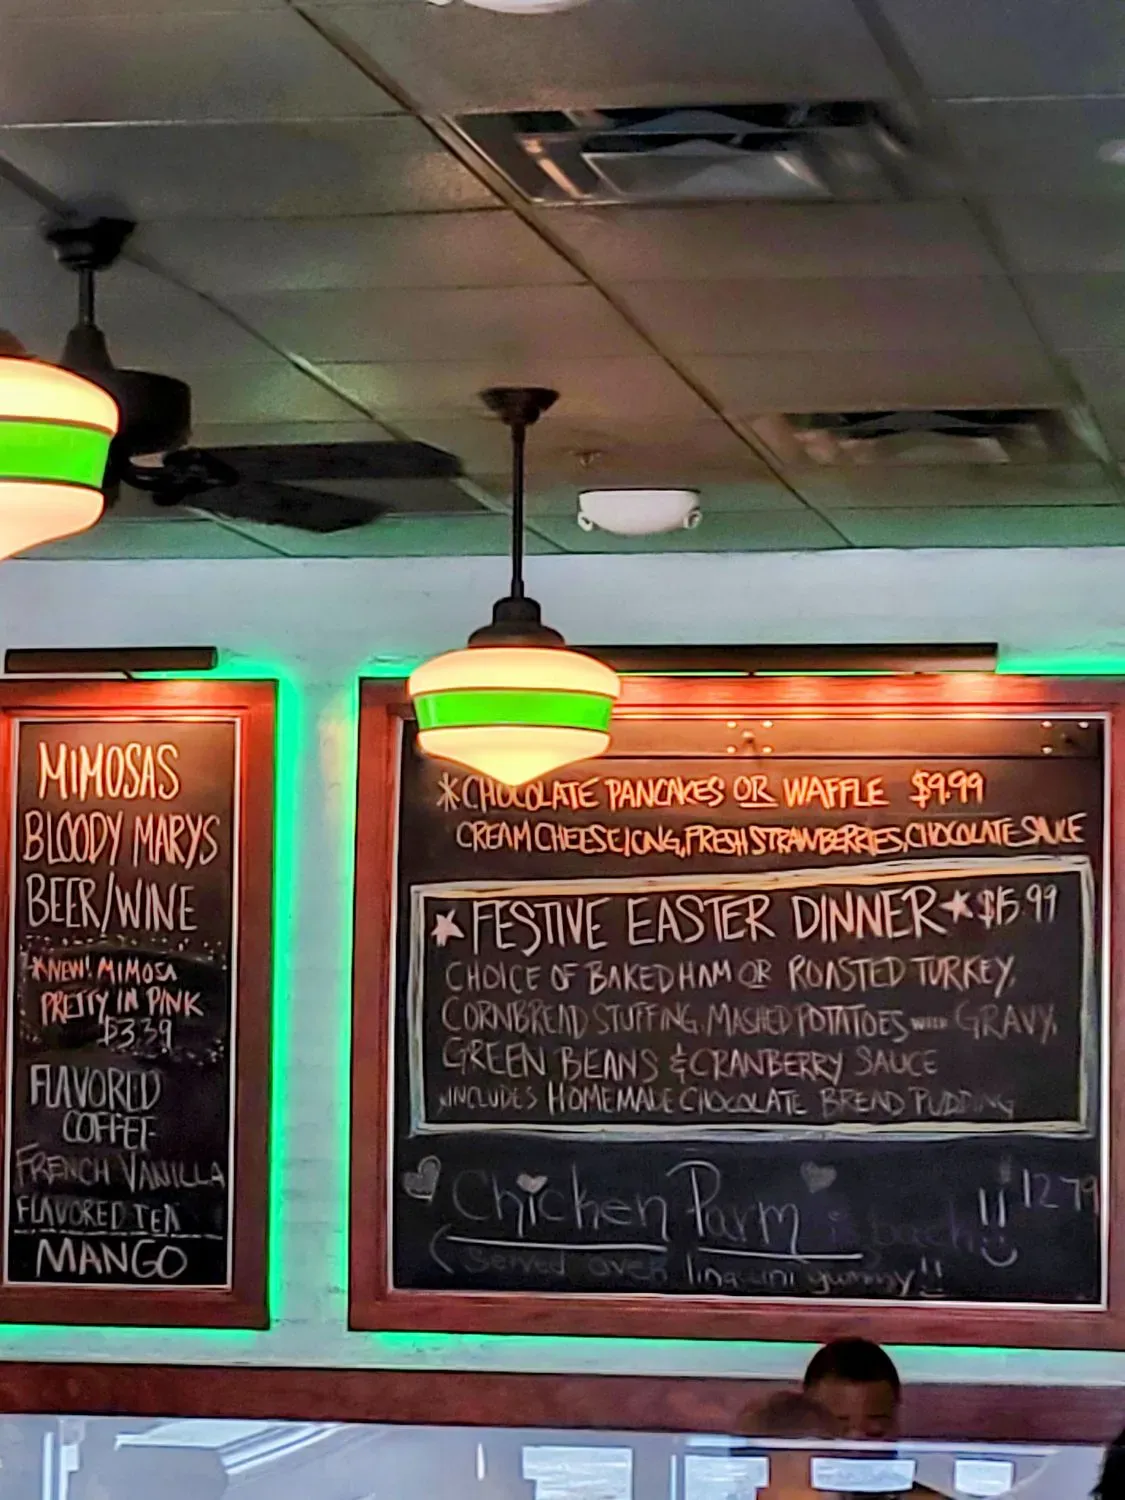 MIMOSAS
BLOODY MARYS
BEER/WINE
*NEW! MIMOSA
PRETTY IN PINK
$3.39
FLAVORED
COFFEE
FRENCH VANILLA
FLAVORED TEA
MANGO
*CHOCOLATE PANCAKES OR WAFFLE $9.99
CREAM CHEESE ICNG, FRESH STRAWBERRIES, CHOCOLATE SAUCE
★ FESTIVE EASTER DINNER ★ $15.99
CHOICE OF BAKED HAM OR ROASTED TURKEY,
CORNBREAD STUFFING, MASHED POTATOES WITH GRAVY,
GREEN BEANS & CRANBERRY SAUCE
*INCLUDES HOMEMADE CHOCOLATE BREAD PUDDING
Chicken Parm is back!! 12.79
(Served over linguini yummy!!